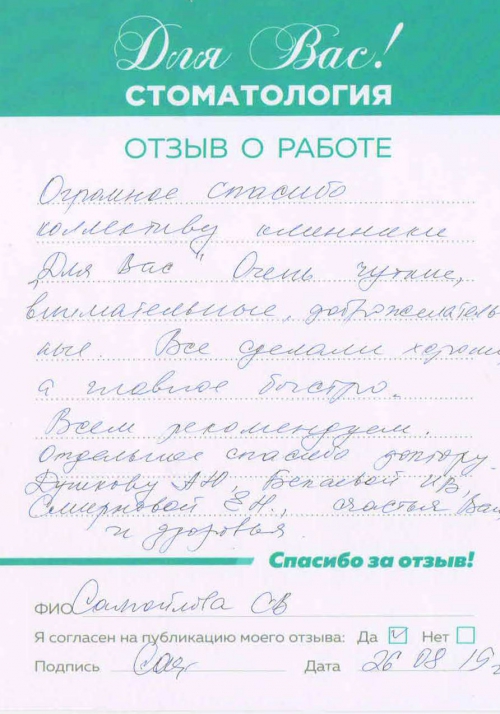 Для Вас!
СТОМАТОЛОГИЯ
ОТЗЫВ О РАБОТЕ
Огромное спасибо
коллективу клиники
„Для Вас" Очень чуткие,
внимательные, доброжелатель
ные. Все сделали хорошо
а главное быстро.
Всем рекомендуем.
Отдельное спасибо доктору
А.Ю, И.В,
Смирновой Е.Н., счастья Вам
и здоровья.
Спасибо за отзыв!
ФИО Самойлова СВ
Я согласен на публикацию моего отзыва: Да ☑ Нет ☐
Подпись Дата 26 08 19г